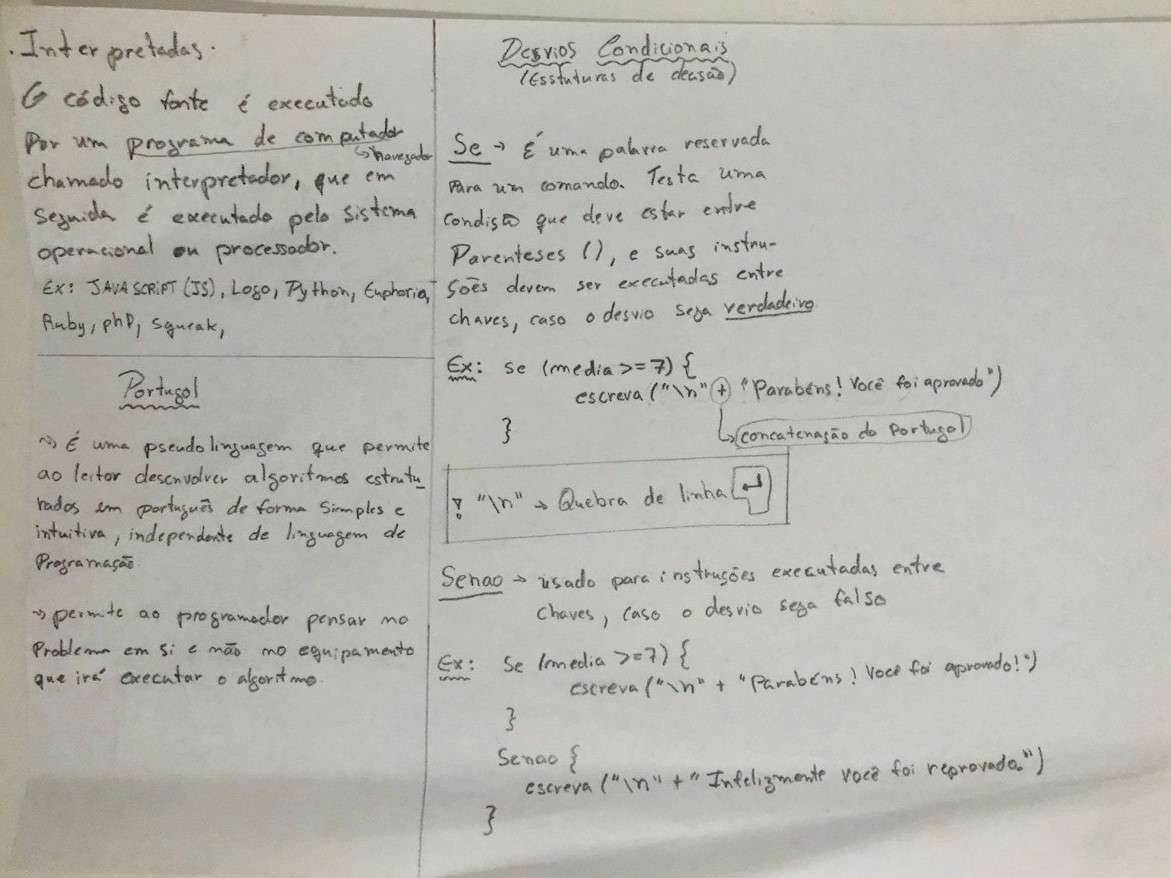 . Interpretadas.
O código fonte é executado
Por um programa de computador
↳ navegador
chamado interpretador, que em
seguida é executado pelo sistema
operacional ou processador.
Ex: JAVASCRIPT (JS), Logo, Python, Euphoria,
Ruby, php, Squeak,
Portugol
~> É uma pseudolinguagem que permite
ao leitor desenvolver algoritmos estrutu
rados em português de forma simples e
intuitiva, independente de linguagem de
Programação.
~> permite ao programador pensar no
Problema em si e não no equipamento
que irá executar o algoritmo.
Desvios Condicionais
(Esstuturas de decisão)
Se → É uma palavra reservada
Para um comando. Testa uma
condição que deve estar entre
Parenteses (), e suas instru-
ções devem ser executadas entre
chaves, caso o desvio seja verdadeiro
Ex: se (media >=7) {
escreva ("\n" + "Parabéns! Você foi aprovado")
}
↳ concatenação do Portugol
! "\n" → Quebra de linha ↵
Senao → usado para instruções executadas entre
chaves, caso o desvio seja falso
Ex: Se (media >=7) {
escreva ("\n" + "Parabéns! Você foi aprovado!")
}
Senao {
escreva ("\n" + "Infelizmente você foi reprovado.")
}